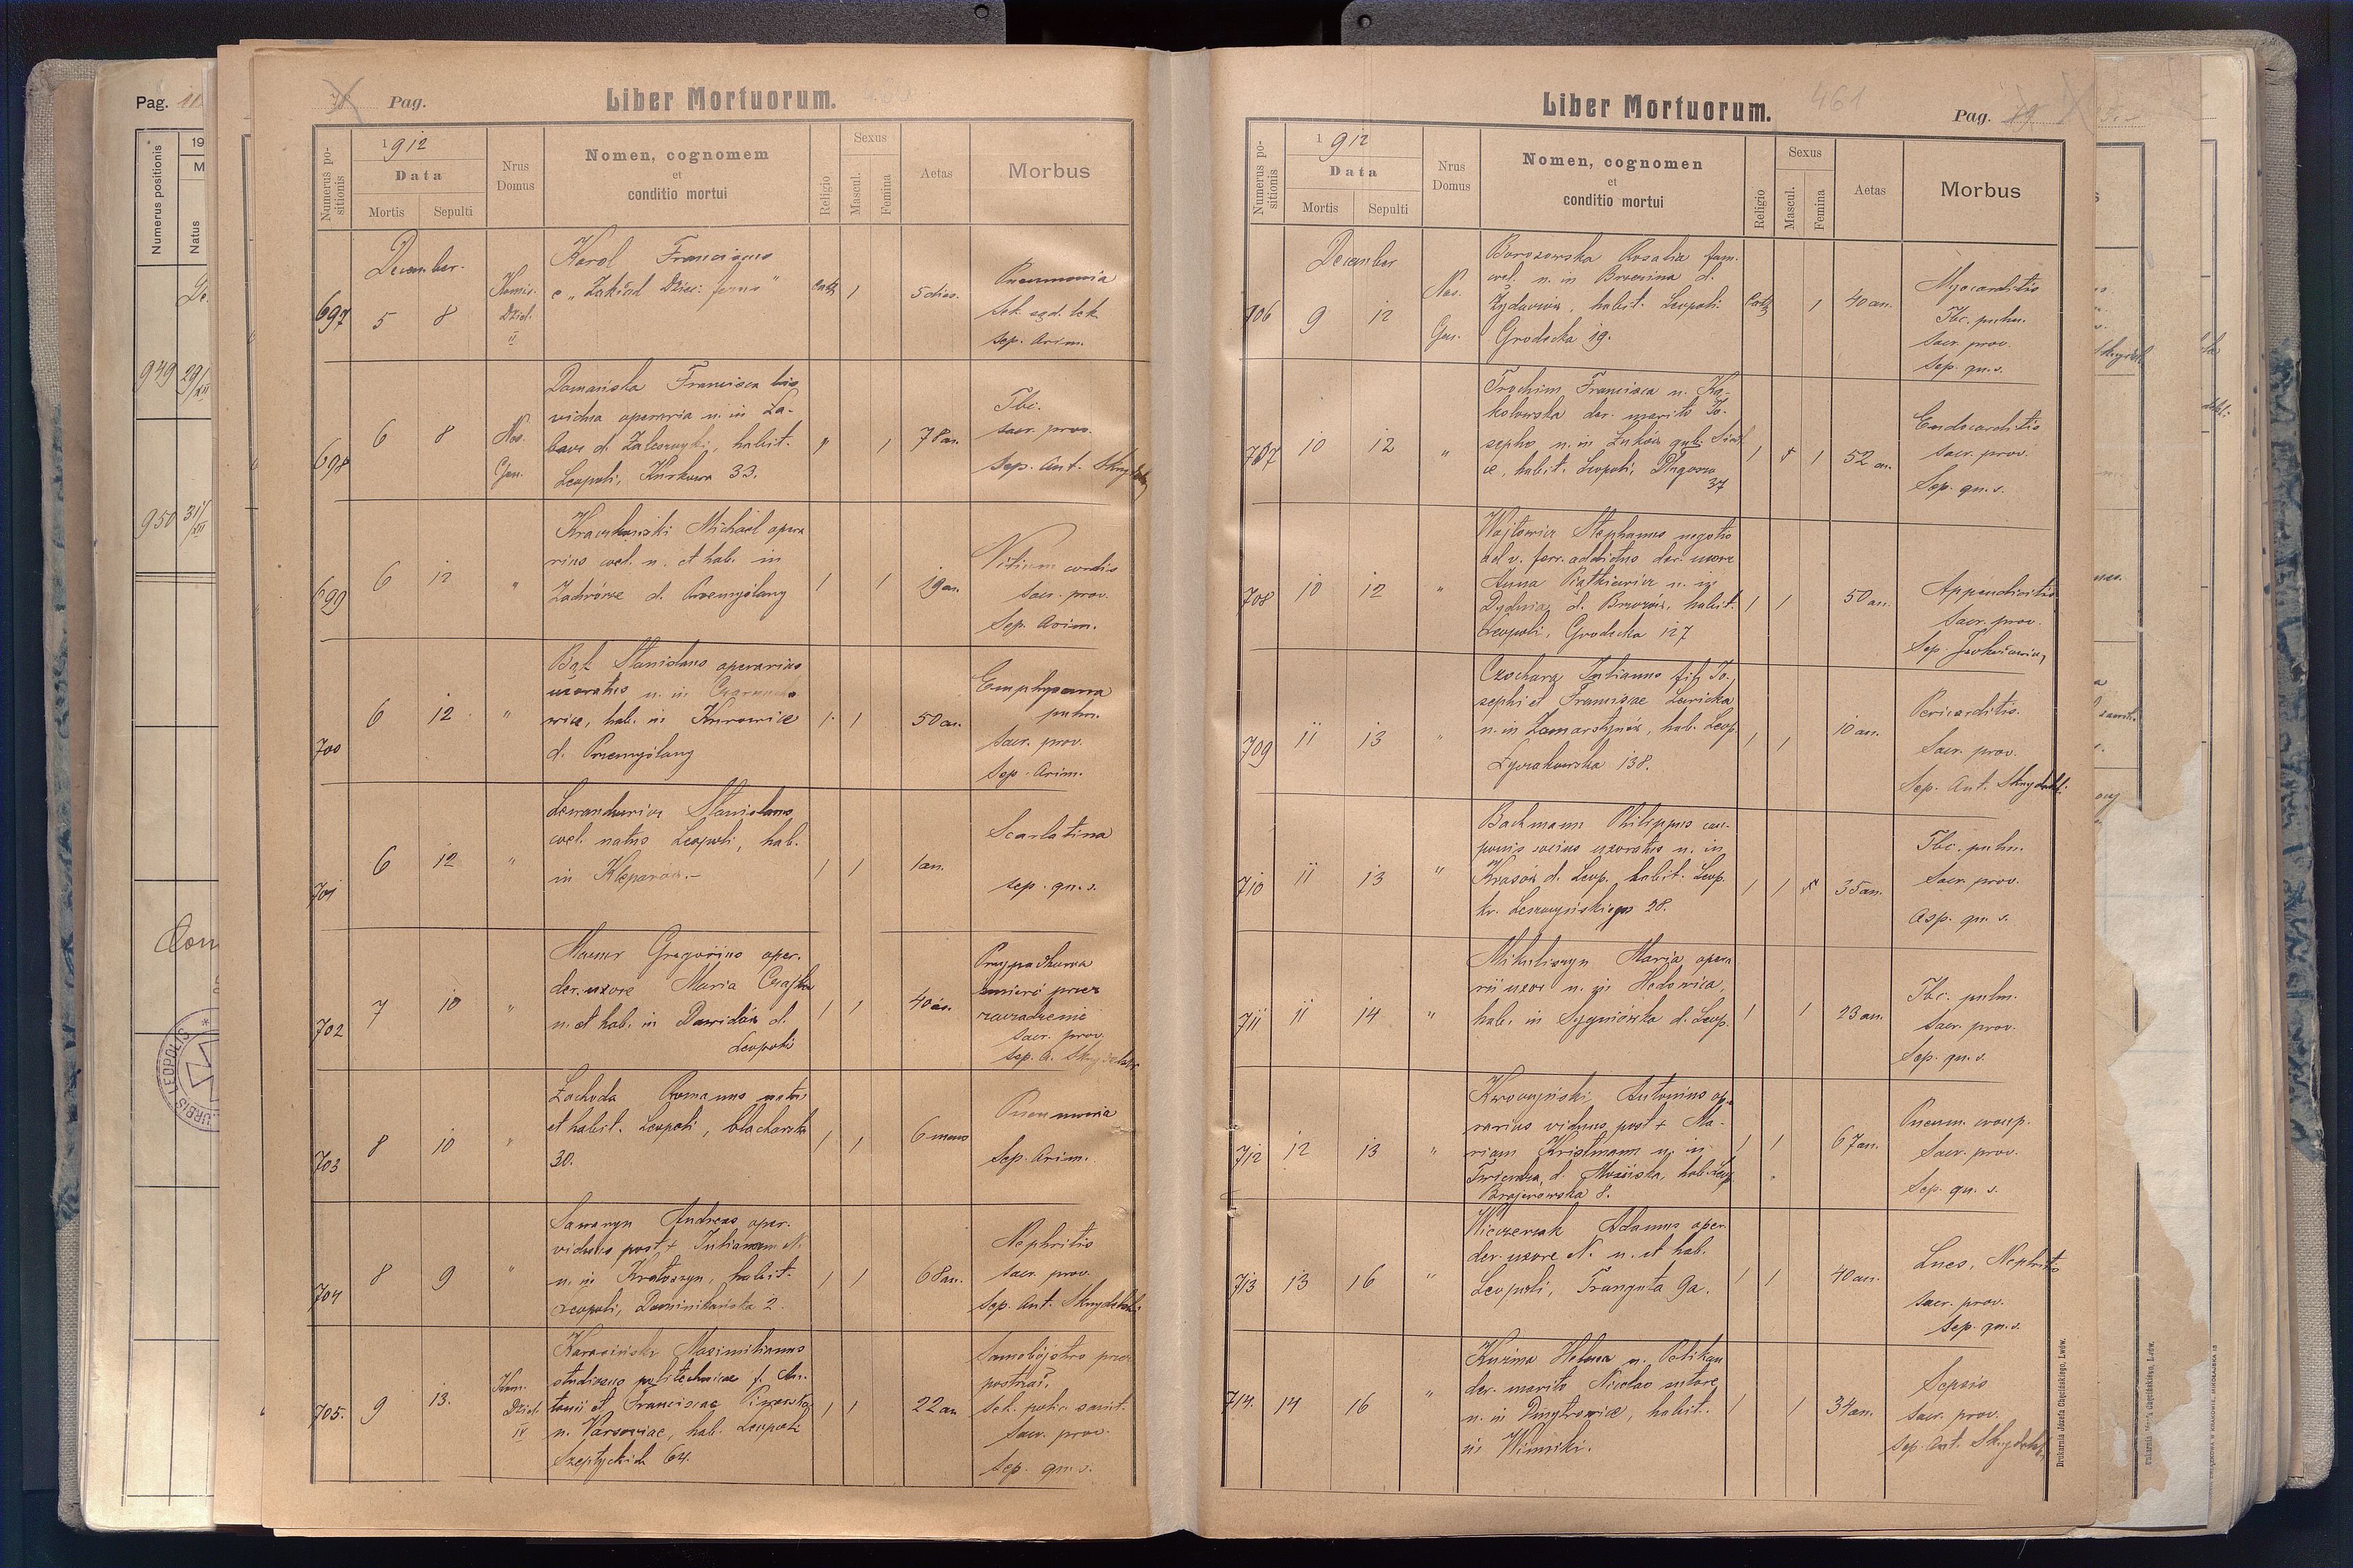 78 Pag.
Liber Mortuorum.
Numerus positionis
1912
Data
Mortis
Sepulti
Nrus Domus
Nomen, cognomem
et
conditio mortui
Religio
Sexus
Mascul.
Femina
Aetas
Morbus
December.
697
5
8
Komis.
Dziel.
II
Karol Franciscus
e „Zakład Dziec:
cath
1
5 dies.
Pneumonia
Sek. sąd. lek.
sep. Arim.
698
6
8
Nos.
Gen.
Domańska Francisca
vidua operaria n. in Za-
d. Zaleszczyki, habit.
Leopoli, Kurkowa 33.
"
1
78 an.
Tbc.
sacr. prov.
Sep. Ant.
699
6
12
"
Michael opera
rius coel. n. et hab. in
Zadwórze d. Przemyślany
1
1
19 an.
Vitium cordis
Sacr. prov.
Sep. Arim.
700
6
12
"
Bąk Stanislaus operarius
uxoratus n. in
wice, hab. in Kurowice
d. Przemyślany
1
1
50 an.
Emphysema
pulm.
Sacr. prov.
Sep. Arim.
701
6
12
"
Stanislaus
coel. natus Leopoli, hab.
in Kleparów.-
1
1
1 an.
Scarlatina
sep. qu. s.
702
7
10
"
Gregorius oper.
der. uxore Maria Czajka
n. et hab. in Dawidów d.
Leopoli
1
1
40 an.
Przypadkowa
śmierć przez
sacr. prov.
Sep. A.
703
8
10
"
Zachoda Romanus natus
et habit. Leopoli, blacharska
30.
1
1
6 mens
Pneumonia
Sep. Arim.
704
8
9
"
Sawaryn Andreas oper.
viduus post + Julianam N.
n. in Krotoszyn, habit.
Leopoli, Dominikańska 2.
1
1
68 an.
Nephritis
Sacr. prov.
Sep. Ant.
705.
9
13.
Kom.
Dziel.
IV
Karasiński Maximilianus
studiosus politechnicae f. An-
tonii et Franciscae
n. Varsoviae, hab. Leopoli
Szeptyckich 64.
1
1
22 an.
Samobójstwo przez
postrzał,
Sek. polic. sanit.
Sacr. prov.
Sep. qu. s.
Liber Mortuorum.
461
Pag. 79
Numerus positionis
1912
Data
Mortis
Sepulti
Nrus Domus
Nomen, cognomen
et
conditio mortui
Religio
Sexus
Mascul.
Femina
Aetas
Morbus
December
706
9
12
Nos.
Gen.
Rosalia fam.
coel. n. in Brzezina d.
habit. Leopoli
Grodecka 19.
Cath
1
40 an.
Myocarditis
Tbc. pulm.
Sacr. prov.
Sep. qu. s.
707
10
12
"
Trochim Francisca n. Ko-
kolowska der. marito Jo-
sepho n. in Łuków gub. Siedl
ce, habit. Leopoli, Długosza
37
1
1
52 an.
Endocarditis
Sacr. prov.
Sep. qu. s.
708
10
12
"
Wojtowicz Stephanus negotio
ad v. ferr. addictus der. uxore
Anna Piątkiewicz n. in
Dydnia, d. Brzozów, habit.
Leopoli, Grodecka 127
1
1
50 an.
Appendicitis
Sacr. prov.
Sep.
709
11
13
"
Czochara Julianus fil. Jo-
sephi et Franciscae Lewicka
n. in Zamarstynów, hab. Leop.
Łyczakowska 138.
1
1
10 an.
Pericarditis.
Sacr. prov.
Sep. Ant.
710
11
13
"
Bachmann Philippus cau-
ponis socius uxoratus n. in
Krasów d. Leop. habit. Leop.
kr. Leszczyńskiego 28.
1
1
35 an.
Tbc. pulm.
Sacr. prov.
Sep. qu. s.
711
11
14
"
Mikuliszyn Maria opera
rii uxor n. in Hodowica,
hab. in Sygniówka d. Leop.
1
1
23 an.
Tbc. pulm.
Sacr. prov.
Sep. qu. s.
712
12
13
"
Antonius ope
rarius viduus post + Ma-
riam Kristmann n. in
Twierdza, d. Mościska, hab. Leop.
Brajerowska 8.
1
1
67 an.
Pneum. croup.
Sacr. prov.
Sep. qu. s.
713
13
16
"
Wieczerzak Adamus oper.
der. uxore N. n. et hab.
Leopoli, Trauguta 9a.
1
1
40 an.
Lues, Nephritis
Sacr. prov.
Sep. qu. s.
714.
14
16
"
Kuzma Helena n. Pelikan
der. marito Nicolao sutore
n. in Dmytrowice, habit.
in Winniki.
1
1
34 an.
Sepsis
Sacr. prov.
Sep. Ant.
Drukarnia Józefa Chęcińskiego, Lwów.
Pag.
Numerus positionis
19
Natus
949
29/XII
950
31/XII
URBIS LEOPOLIS